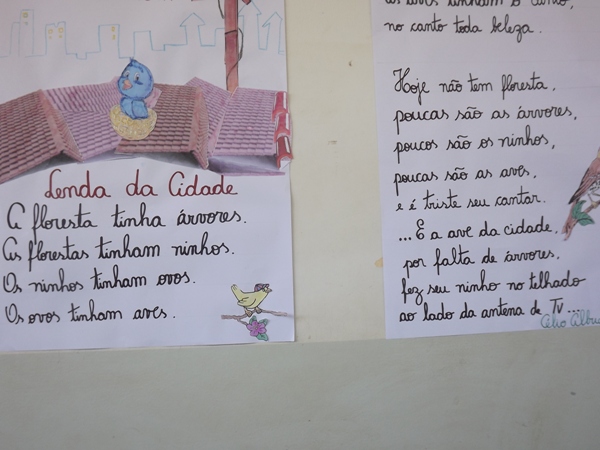 Lenda da Cidade
A floresta tinha árvores.
As florestas tinham ninhos.
Os ninhos tinham ovos.
Os ovos tinham aves.
as aves tinham o canto,
no canto toda beleza.
Hoje não tem floresta,
poucas são as árvores,
poucos são os ninhos,
poucas são as aves,
e é triste seu cantar.
...E a ave da cidade,
por falta de árvores,
fez seu ninho no telhado
ao lado da antena de Tv...